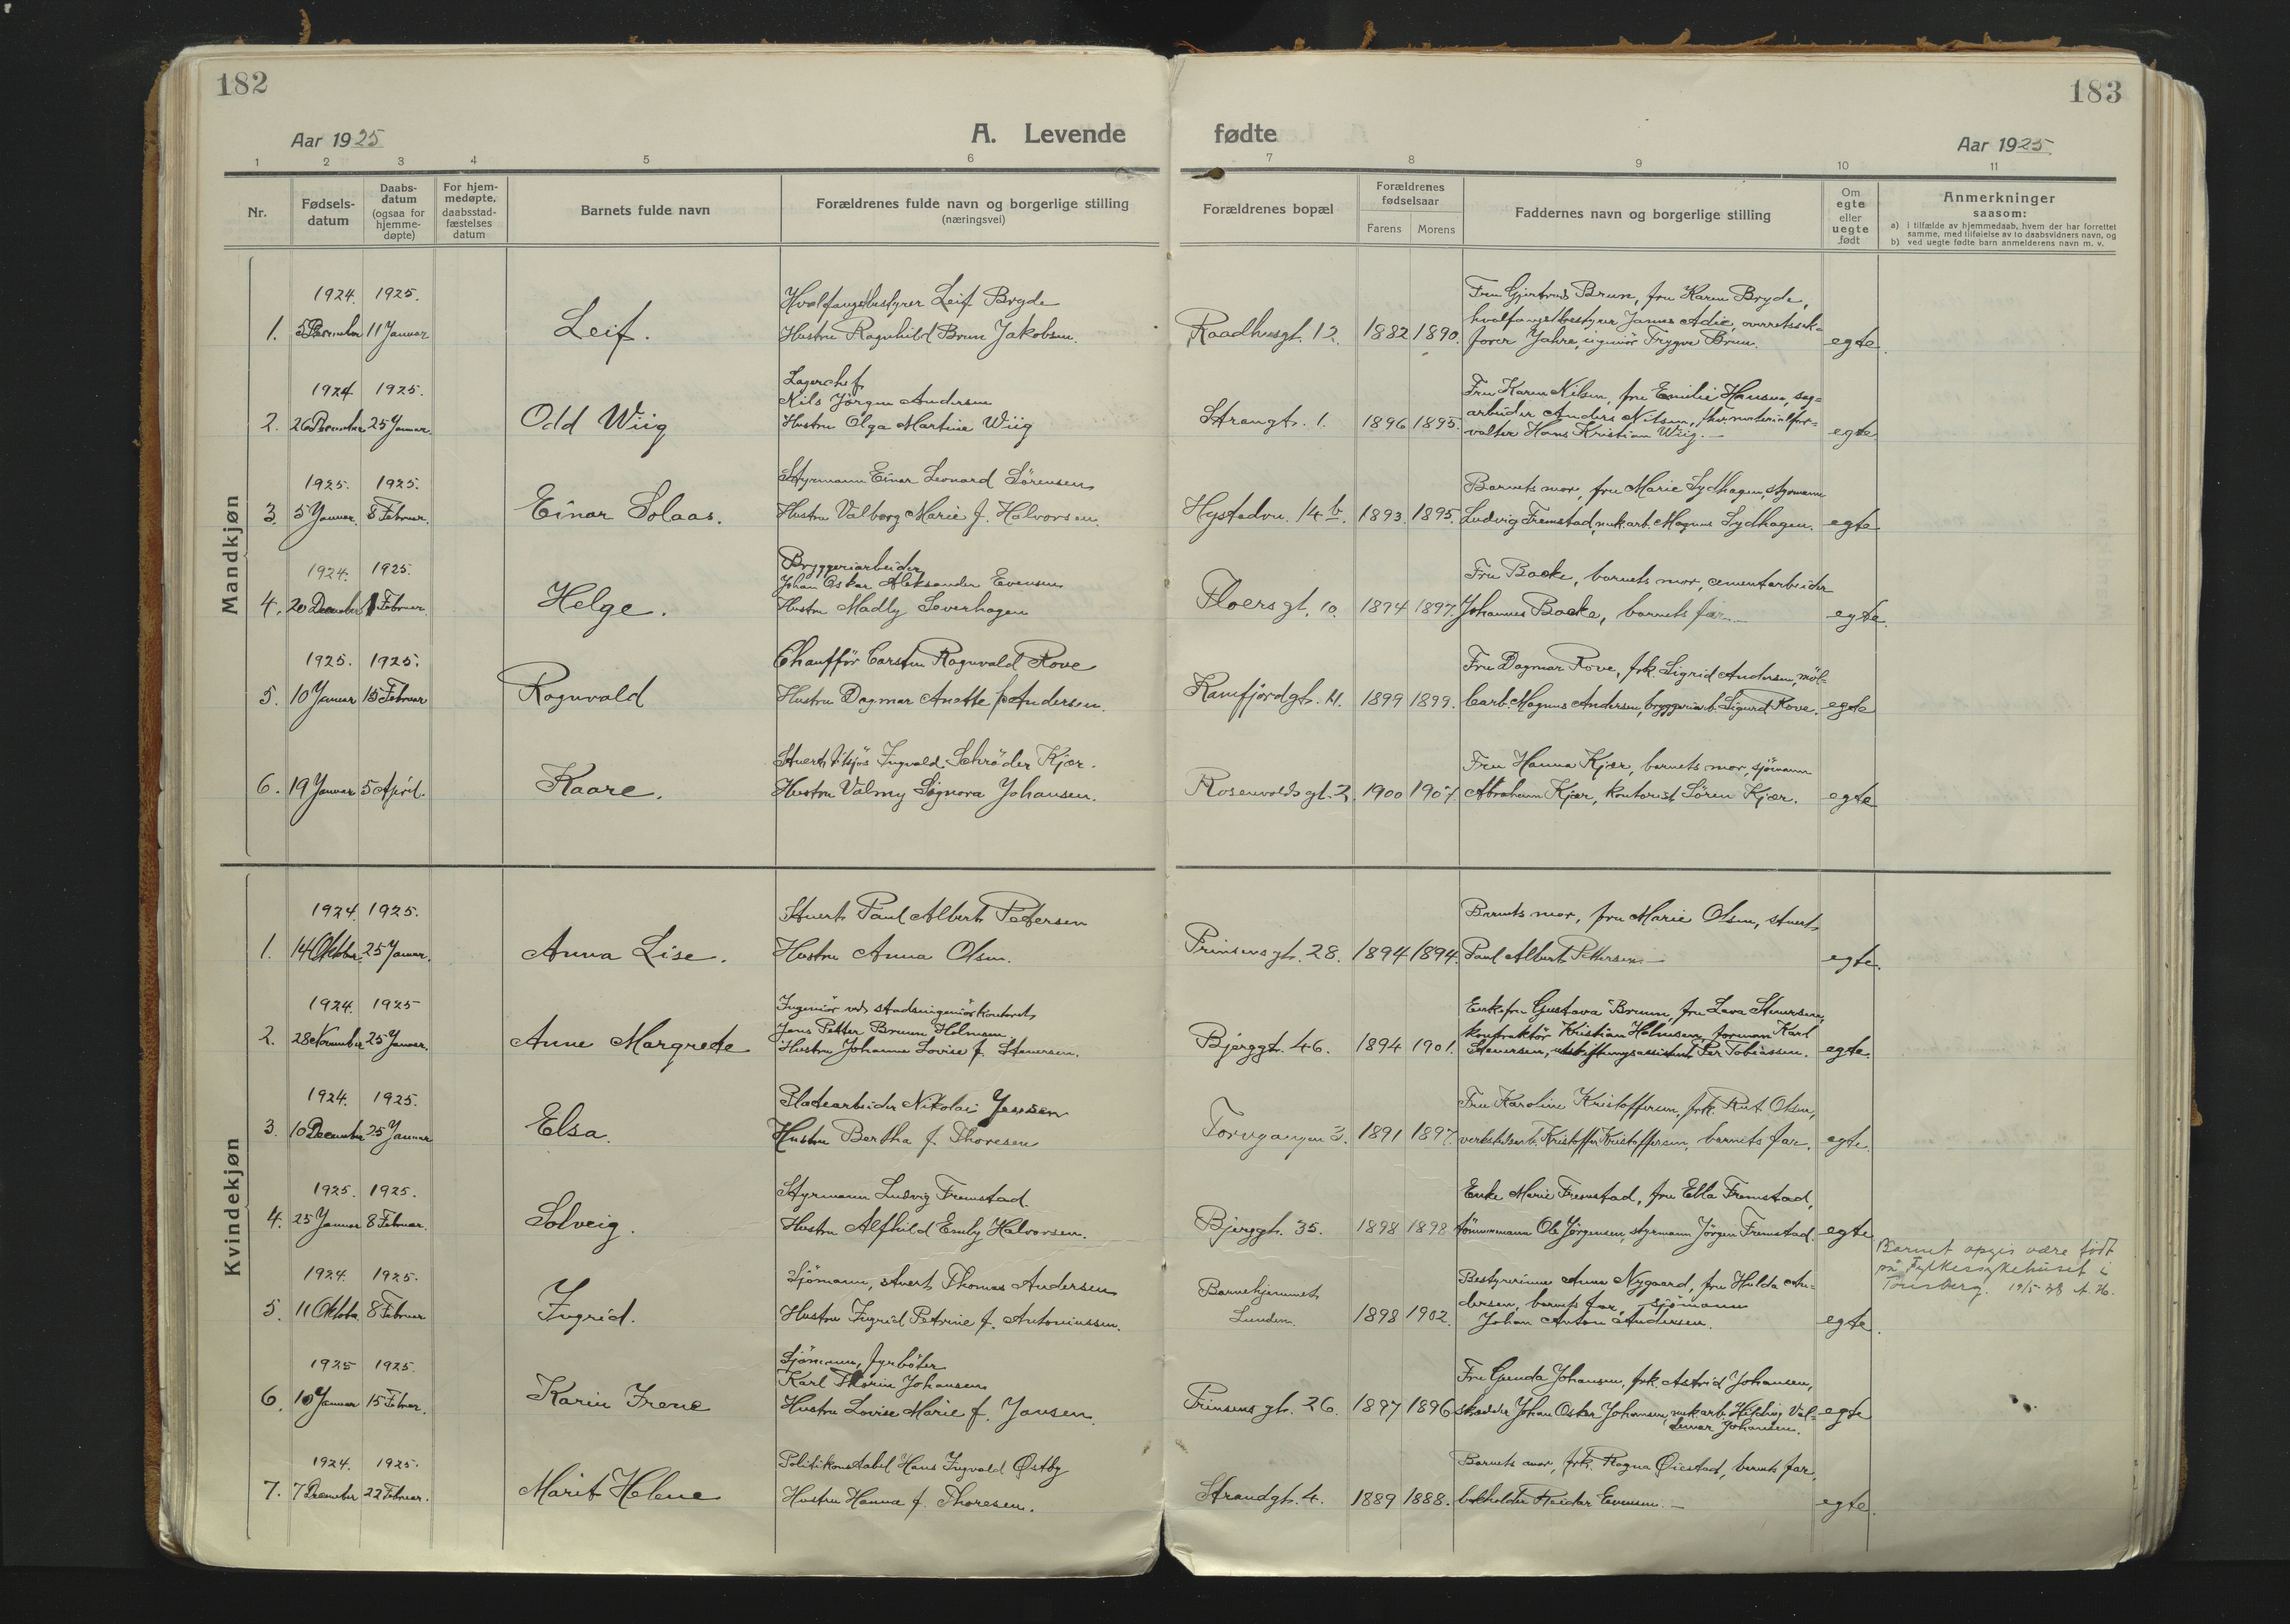 182
Aar 1925
A. Levende
1 2 3 4 5 6
Nr.
Fødsels-
datum
Daabs-
datum
(ogsaa for
hjemme-
døpte)
For hjem-
medøpte,
daabsstad-
fæstelses
datum
Barnets fulde navn
Forældrenes fulde navn og borgerlige stilling
(næringsvei)
Mandkjøn
1924. 1925.
Hvalfangstbestyrer Leif Bryde
1. 5 December 11 Januar Leif. Hustru Ragnhild Brun Jakobsen.
1924 1925.
Lagerchef
Nils Jörgen Andersen
2. 26 December 25 Januar. Odd Wiig Hustru Olga Martine Wiig
1925. 1925.
Styrmann Einar Leonard Sörensen
3. 5 Januar. 8 Februar. Einar Solaas. Hustru Valborg Marie f. Halvorsen.
1924. 1925.
Bryggeriarbeider
Johan Oskar Aleksander Evensen
4. 20 December 1 Februar. Helge. Hustru Madly Severhagen
1925. 1925.
Chaufför Carsten Ragnvald Rove
5. 10 Januar 15 Februar Ragnvald Hustru Dagmar Anette f. Andersen.
Stuert tilsjös Ingvald Schröder Kjær.
6. 19 Januar 5 April. Kaare. Hustru Valmy Signora Johansen.
Kvindekjøn
1924. 1925.
Stuert Paul Albert Pettersen
1. 14 Oktober. 25 Januar. Anna Lise. Hustru Anna Olsen.
1924. 1925
Ingeniör ved stadsingeniörkontoret
Jens Petter Bruun Holmsen
2. 28 November 25 Januar. Anne Margrete Hustru Johanne Lovise f. Stenersen.
1924. 1925.
Pladearbeider Nikolai Jensen
3. 10 December 25 Januar Elsa. Hustru Bertha f. Thoresen
1925. 1925.
Styrmann Ludvig Fremstad.
4. 25 Januar 8 Februar. Solveig. Hustru Alfhild Emly Halvorsen.
1924. 1925.
Sjömann, stuert Thomas Andersen
5. 11 Oktober 8 Februar Ingrid. Hustru Ingrid Petrine f. Antoniussen.
1925 1925.
Sjömann, fyrböter
Karl Thorin Johansen
6. 10 Januar 15 Februar. Karin Irene Hustru Lovise Marie f. Jansen.
1924. 1925.
Politikonstabel Hans Ingvald Østby
7. 7 December 22 Februar. Marit Helene Hustru Hanna f. Thoresen.
183
fødte
Aar 1925
7 8 9 10 11
Forældrenes bopæl
Forældrenes
fødselsaar
Farens Morens
Faddernes navn og borgerlige stilling
Om
egte
eller
uegte
født
Anmerkninger
saasom:
a) i tilfælde av hjemmedaab, hvem der har forrettet
samme, med tilføielse av to daabsvidners navn, og
b) ved uegte fødte barn anmelderens navn m. v.
Fru Gjertrud Brun, fru Karen Bryde,
hvalfangstbestyrer James Adie, overretssak=
Raadhusgt. 12. 1882 1890. förer Jahre, ingeniör Trygve Brun. egte.
Fru Karen Nilsen, fru Emilie Hansen, sag=
arbeider Anders Nilsen, materialfor=
Strangt. 1. 1896 1895. valter Hans Kristian Wiig. egte
Barnets mor, fru Marie Sydhagen, styrmann
Hystadvn. 14 b. 1893. 1895. Ludvig Fremstad, mek.arb. Magnus Sydhagen. egte
Fru Backe, barnets mor, cementarbeider
Floersgt. 10. 1894 1897. Johannes Backe, barnets far. egte.
Fru Dagmar Rove, frk. Sigrid Andersen, möl=
Kamfjordgt. 14. 1899 1899. learb. Magnus Andersen, bryggeriarb. Sigurd Rove. egte
Fru Hanna Kjær, barnets mor, sjömann
Rosenvoldsgt. 2. 1900 1901. Abraham Kjær, kontorist Sören Kjær. egte
Barnets mor, fru Marie Olsen, stuert
Prinsensgt. 28. 1894 1894. Paul Albert Pettersen. egte.
Enkefru Gustava Bruun, fru Lava Stenersen,
kontraktör Kristian Holmsen, formann Karl
Bjerggt. 46. 1894 1901. Stenersen, utskiftningsassistent Per Tobiassen. egte.
Fru Karoline Kristoffersen, frk. Rut Olsen,
Torvgangen 3. 1891 1897. verkstedarb. Kristoffer Kristoffersen, barnets far. egte.
Enke Marie Fremstad, fru Ella Fremstad,
Bjerggt. 35. 1898 1898 tömmermann Ole Jørgensen, styrmann Jörgen Fremstad. egte
Barnet opgis være født
på Fylkessykehuset i
Tønsberg. 19/5 38
Bestyrerinne Anna Nygaard, fru Hulda An=
Barnehjemmet dersen, barnets far, sjömann
Lunden. 1898 1902. Johan Anton Andersen. egte.
Fru Gunda Johansen, frk. Astrid Johansen,
Prinsensgt. 26. 1897 1896 skrædder Johan Oskar Johansen, mek.arb. Hilding Val= egte
demar Johansen.
Barnets mor, frk. Ragna Øiestad, barnets far,
Strandgt. 4. 1889 1888. bokholder Reidar Evensen. egte.